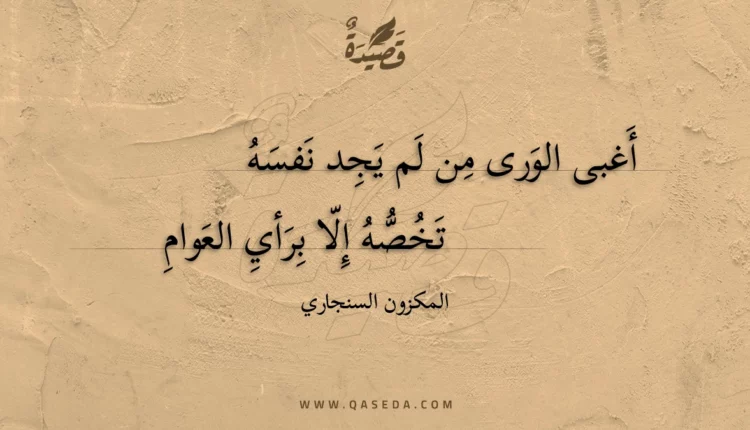 قَصِيدَةٌ
أَغبى الوَرى مِن لَم يَجِد نَفسَهُ
تَخُصُّهُ إِلّا بِرَأيِ العَوامِ
المكزون السنجاري
WWW.QASEDA.COM